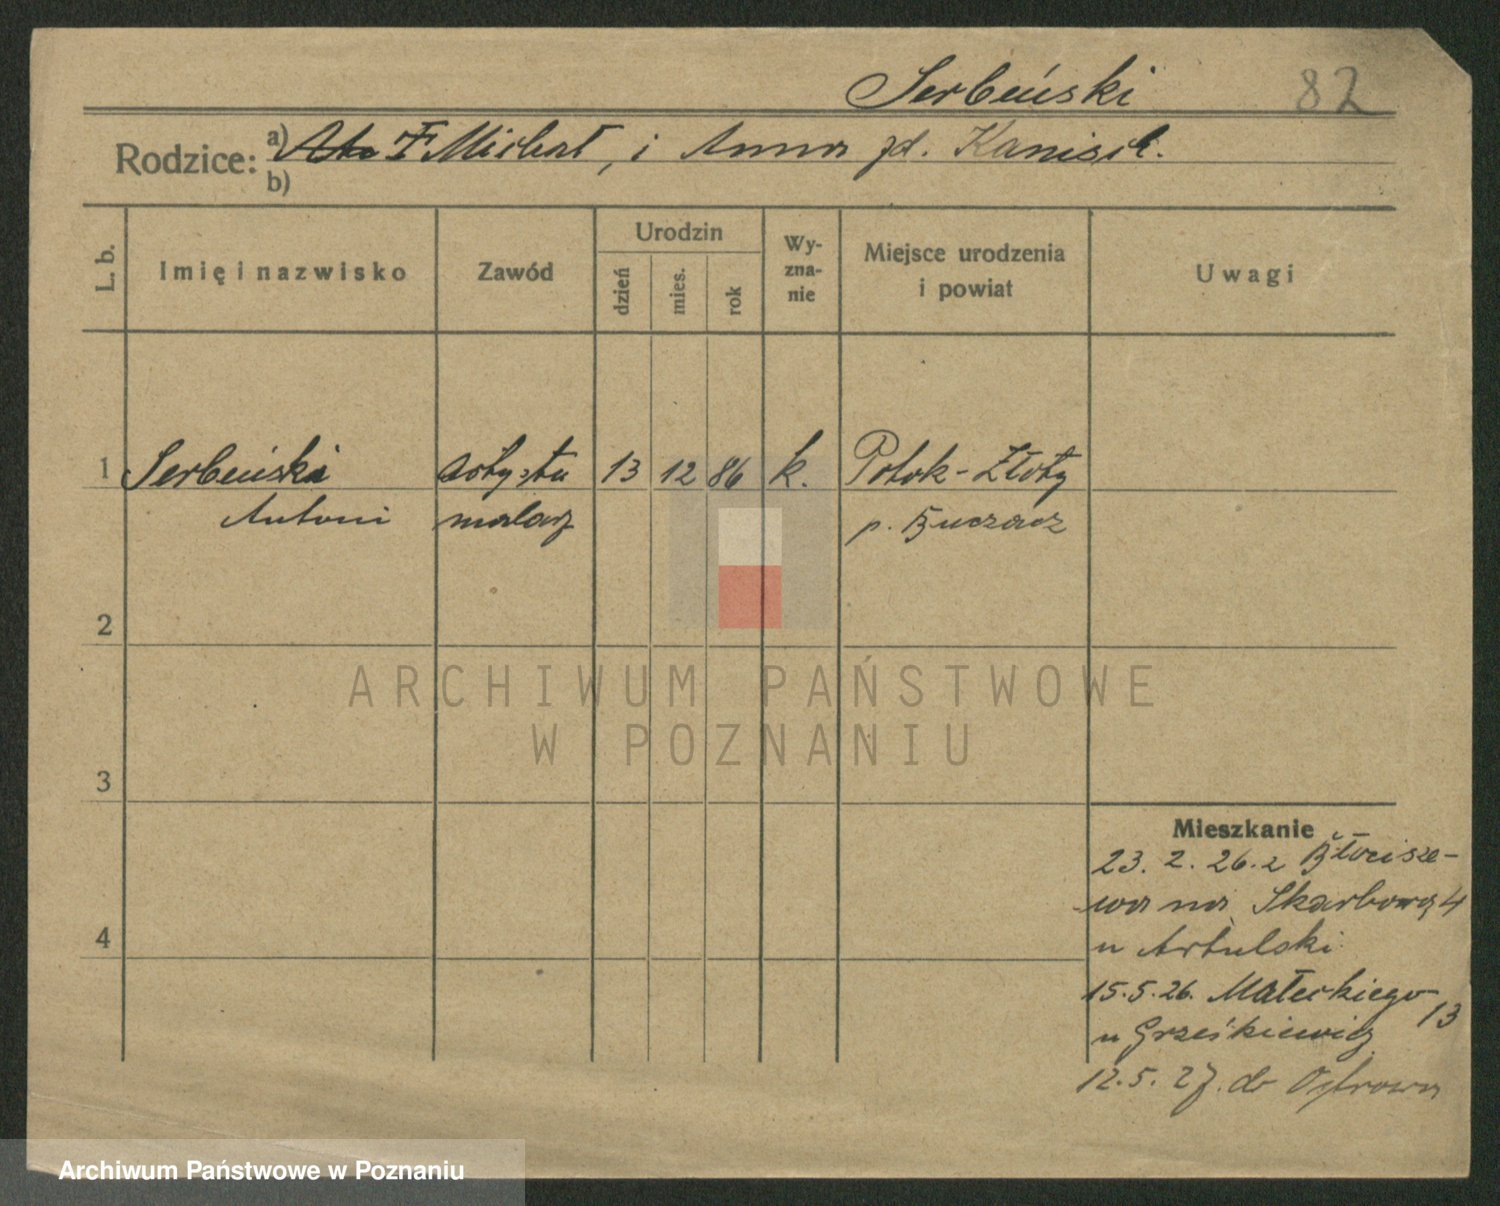 Serbeński 82
Rodzice: a) Michał, i Anna zd.
b)
L. b.
Imię i nazwisko
Zawód
Urodzin
dzień
mies.
rok
Wy-
zna-
nie
Miejsce urodzenia
i powiat
Uwagi
1 Serbeński artysta 13 12 86 k. Potok-Złoty
Antoni malarz p. Buczacz
2
3
4
Mieszkanie
23. 2. 26. z Błocisze-
wa na Skarbową 4
u Artulski
15.5.26. Małeckiego 13
u Grześkiewicz
12.5.27. do Ostrowa
ARCHIWUM PAŃSTWOWE
W POZNANIU
Archiwum Państwowe w Poznaniu